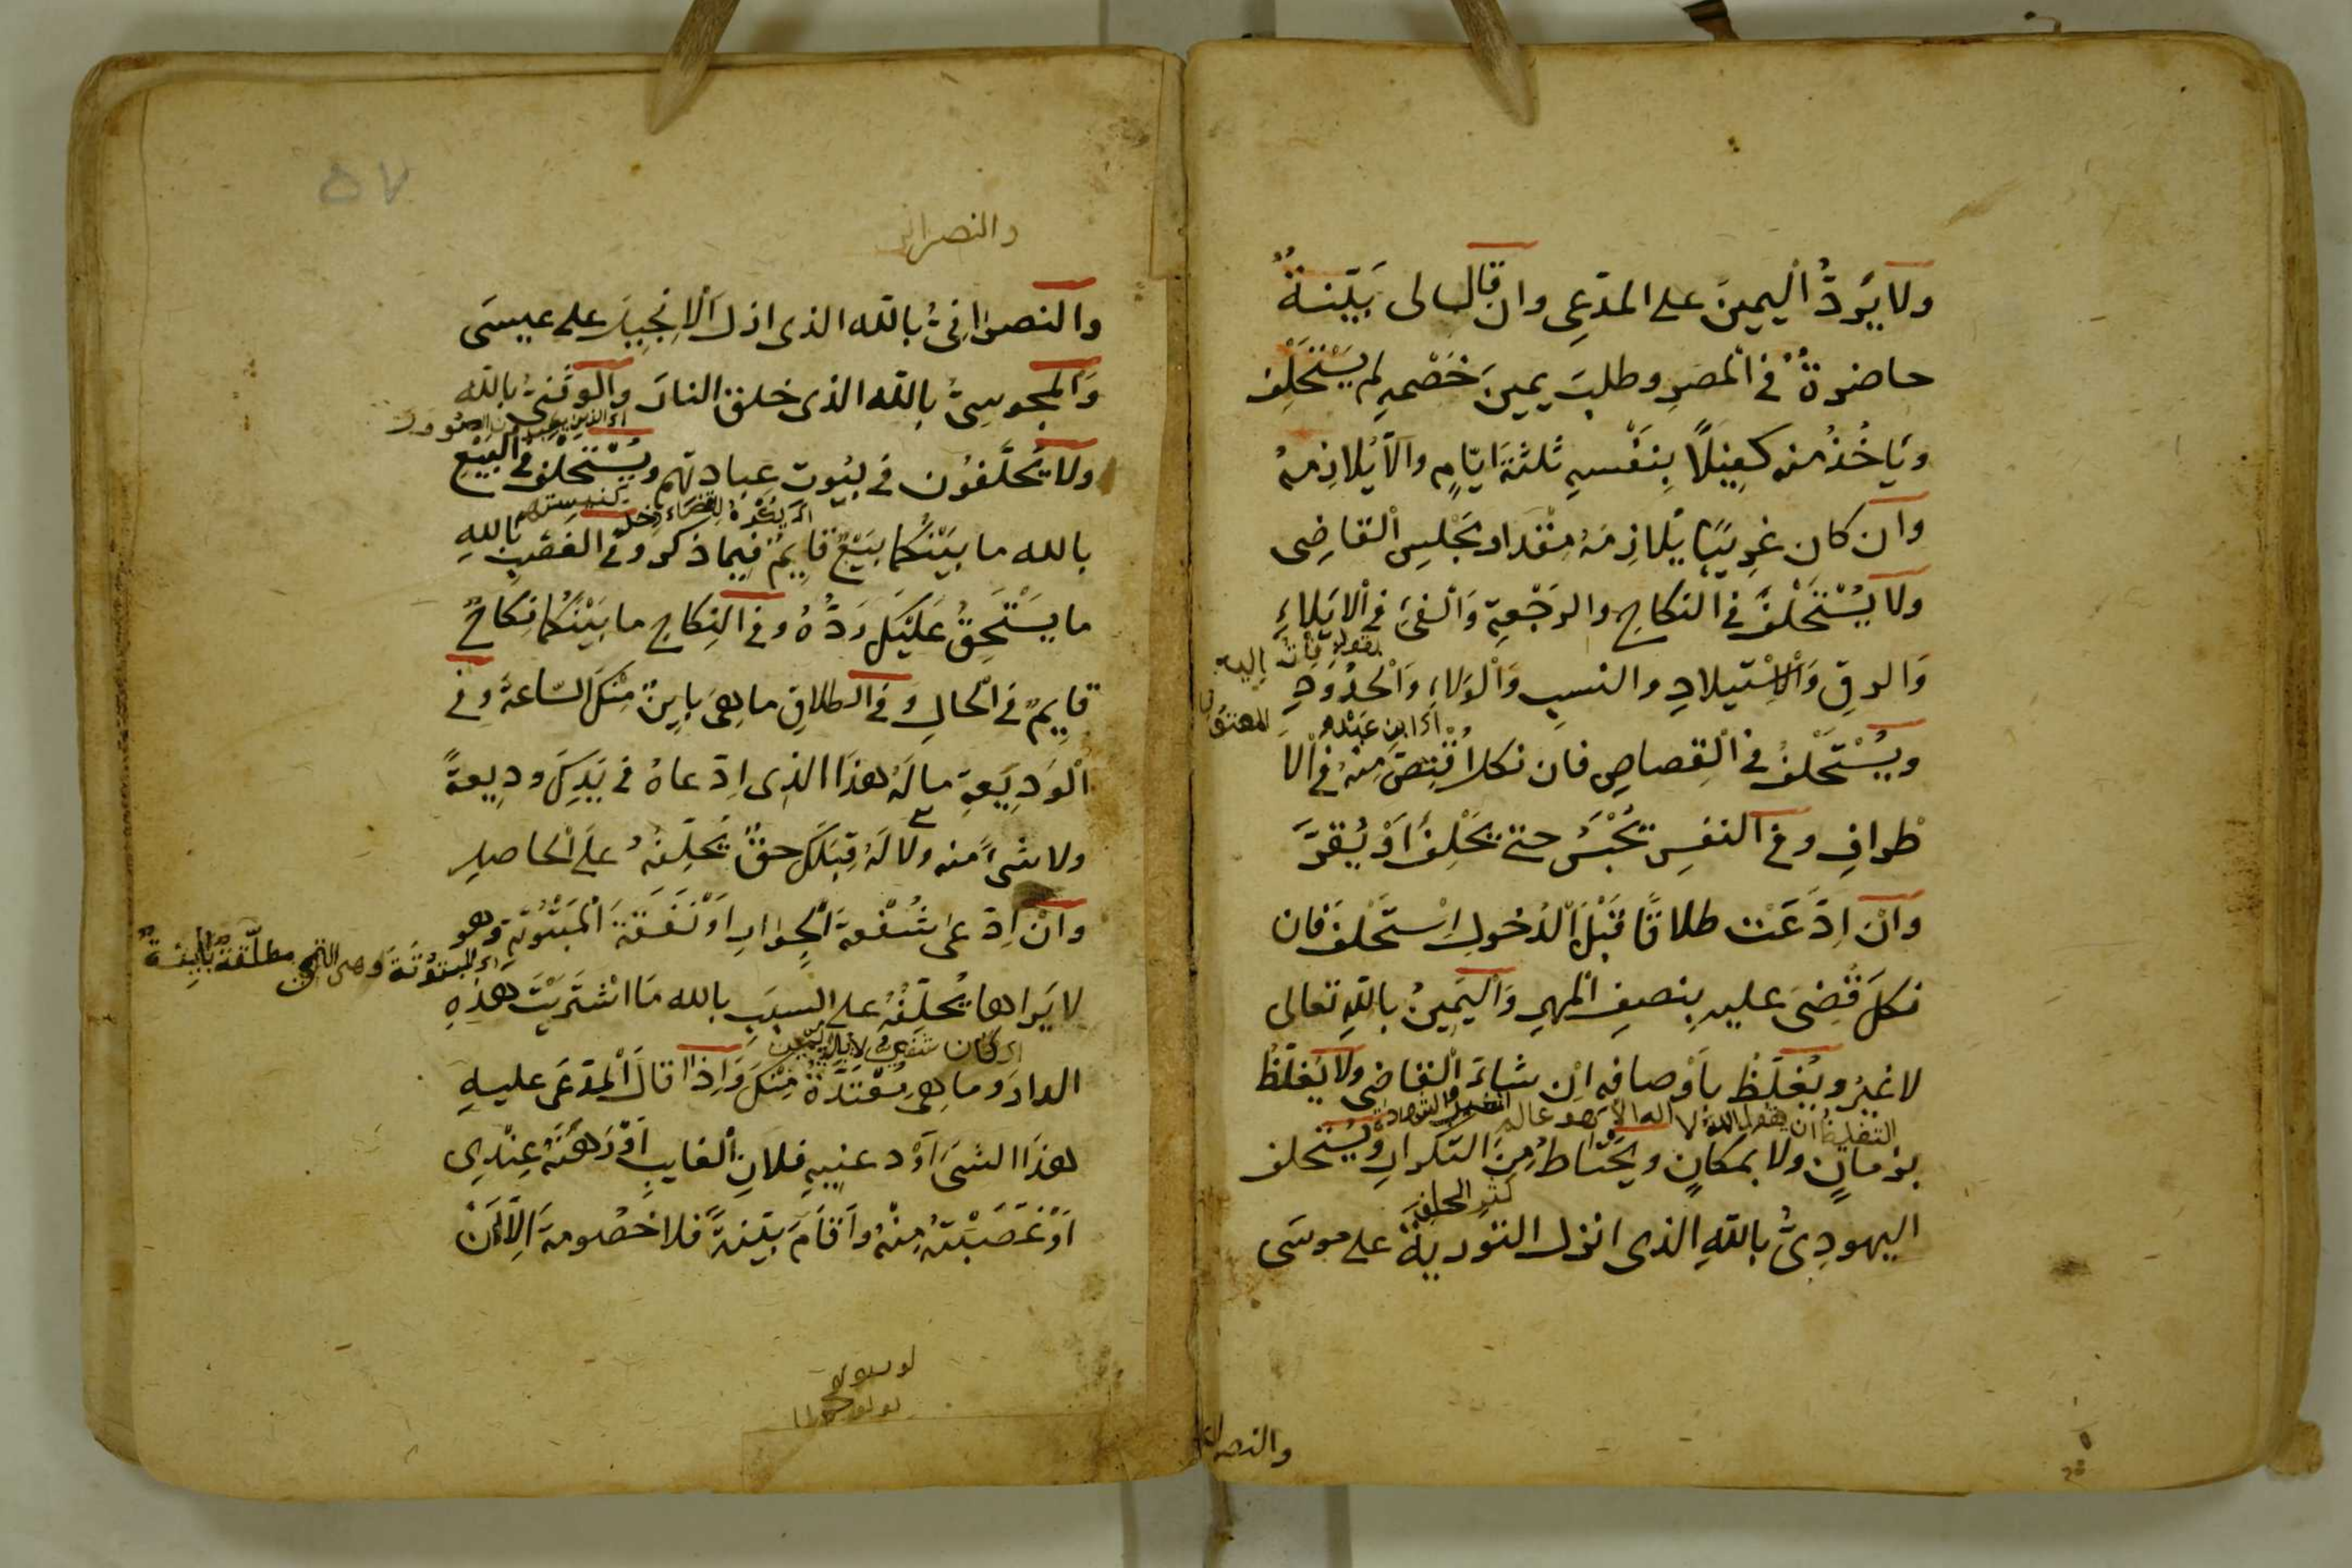 ولا يَرُدُّ اليمينَ على المدّعِى وان قال لى بَيّنةٌ
حاضرةٌ فى المصرِ وطلبَ يمينَ خَصْمِهِ لم يَسْتَحْلِف
ويَاخُذُ منه كفِيلًا بِنَفْسِهِ ثلثةَ ايّامٍ والّا يُلازِمهُ
وان كان غرِيبًا يُلازِمَهُ مِقْدار مَجْلِسِ القاضِى
ولا يُسْتَحْلَفُ فى النكاحِ والرَجْعةِ وَالفَىْءِ فى الايلاءِ
بقوله فأت اليه
وَالرِقِ وَالْاِسْتيلادِ والنسبِ وَالْوَلاءِ وَالْحُدُودِ
اى ابن عبده
للمعتق
ويُسْتَحْلَفُ فى القِصاصِ فان نكل اقْتِصَّ مِنهُ فى الا
طرافِ وفى النفسِ يُحْبَسُ حتى يَحْلِفَ اَوْ يُقِرَّ
وانْ اِدَّعَتْ طلاقًا قَبْلَ الدُخُولِ اسْتَحْلَفَ فان
نكلَ قُضِىَ عليه بِنصفِ المهرِ وَاليَمِينُ باللهِ تعالى
لا غيرُ ويُغلّظ باَوْصافِه اِن شاءَ القاضى ولا يُغلّظُ
التغليظ ان يقول الله لا اله الا هو عالم الغيب والشهادة
بزمانٍ ولا بمكانٍ ويَحْتاطُ مِنَ التكرارِ ويُستحلف
كثر الحلف
اليهودِىُّ باللهِ الذى انزل التوريةَ على موسَى
والنصرانى
۵۷
والنصرانى
والنصرانِىُّ بالله الذى انزل الانجِيلَ على عيسَى
وَالمجوسِىُّ بالله الذى خلق النارَ والوثَنِىُّ بالله
اى الذين يعبدون الصنم
ولا يُحلَّفُون فى بيُوتِ عبادتهم ويُسْتحلف فى البَيْعِ
اى يكره للقضاء دخل كنيستهم
بالله ما بَيْنكُما بَيْعٌ قايِمٌ فِيما ذكر وفى الغصبِ باللهِ
ما يَسْتَحِقُّ عَلَيْكَ رَدُّهُ وفى النِكاحِ ما بَيْنَكُما نِكاحٌ
قايِمٌ فى الحالِ وفى الطلاقِ ما هِىَ باينٌ مِنْكَ السّاعةَ وفى
الْوَدِيَعةِ مالَهُ هذَا الذِى اِدّعاهُ فى يَدِكَ ودِيعةً
ولا شىءَ منه ولا لَهُ قِبَلكَ حقٌ يُحَلِّفهُ على الحاصلِ
وانْ اِدّعى شُفْعةَ الْجِوارِ اَوْ نَفَقَةَ الْمَبْتُوتةِ وهو
اى المبتوتة وهى التى مطلّقة بائِنةٌ
لا يَراها يُحلِّفُهُ على السببِ بالله مَا اشْتَرَيْتَ هذِهِ
الدارَ وما هِى مُعْتَدَّةٌ مِنْكَ وَاِذا قالَ المدّعَى عليهِ
هذَا الشىءَ اَوْدعنِيهِ فلان الغايبِ اَوْ رَهَنَهُ عِنْدِى
اَوْ غَصَبْتهُ مِنْهُ واَقامَ بيّنةً فلا خصُومةَ اِلّا اَنْ